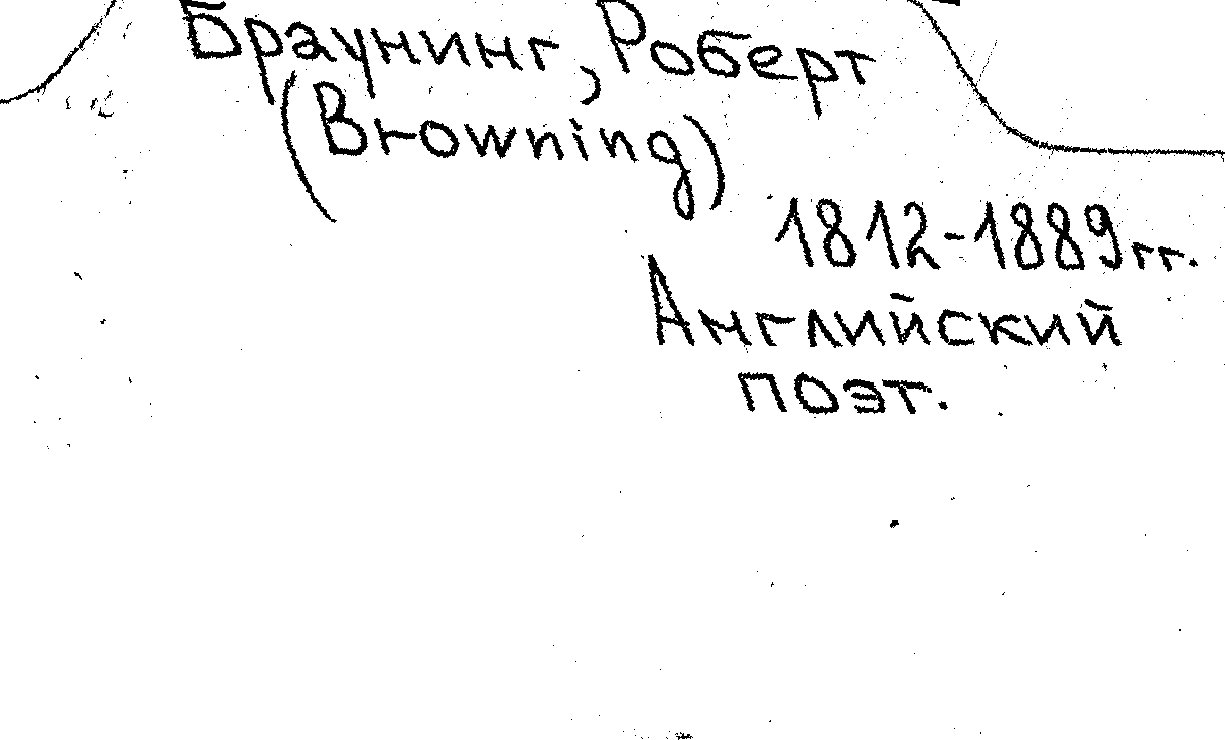 Браунинг, Роберт
(Browning)
1812-1889гг.
Английский
поэт.